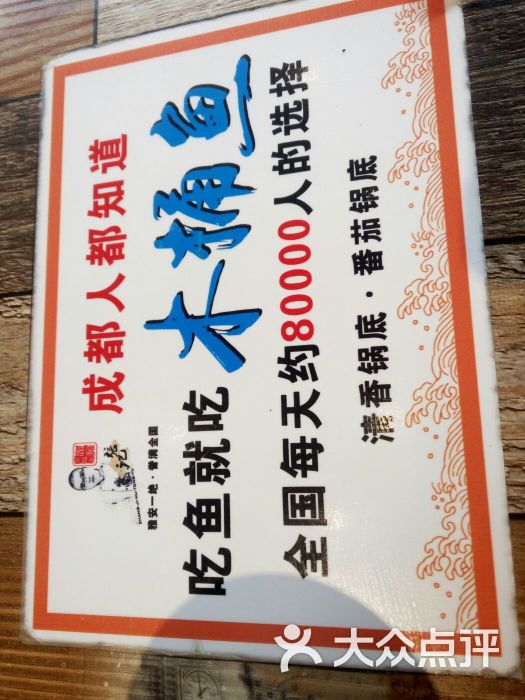 成都人都知道
雅安一绝·誉满全国
吃鱼就吃木桶鱼
全国每天约80000人的选择
清香锅底·番茄锅底
大众点评